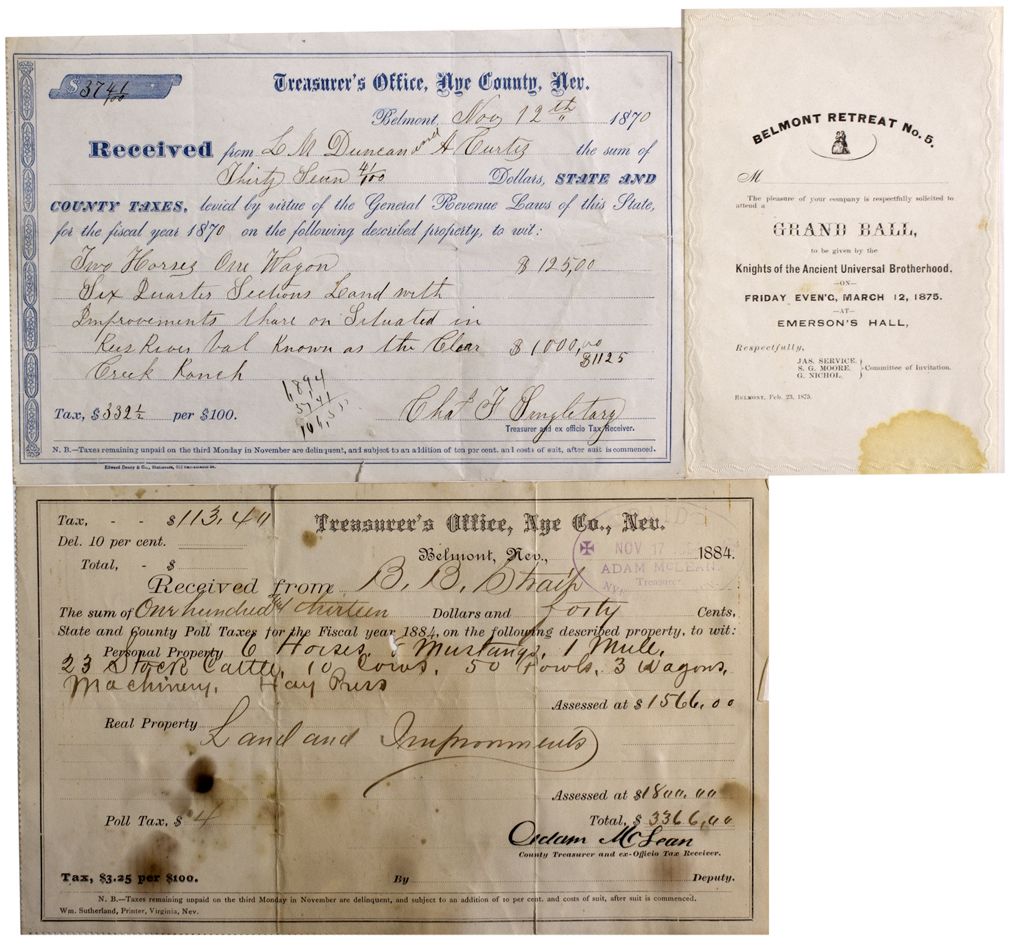 $ 37 41/100
Treasurer's Office, Nye County, Nev.
Belmont, Nov 12th 1870
Received from L M Duncan and A Curtis the sum of
Thirty Seven 41/100 Dollars, STATE AND
COUNTY TAXES, levied by virtue of the General Revenue Laws of this State,
for the fiscal year 1870 on the following described property, to wit:
Two Horses One Wagon $ 125,00
Six Quarter Sections Land with
Improvements thare on Situated in
Rees River Val Known as the Clear $ 1000,00
Creek Ranch $1125
1894
3741
Tax, $332½ per $100.
Chas F Singletary
Treasurer and ex officio Tax Receiver.
N. B.—Taxes remaining unpaid on the third Monday in November are delinquent, and subject to an addition of ten per cent. and costs of suit, after suit is commenced.
BELMONT RETREAT No. 5.
M
The pleasure of your company is respectfully solicited to
attend a
GRAND BALL,
to be given by the
Knights of the Ancient Universal Brotherhood.
—ON—
FRIDAY EVEN'G, MARCH 12, 1875.
—AT—
EMERSON'S HALL,
Respectfully,
JAS. SERVICE,
S. G. MOORE, Committee of Invitation.
G. NICHOL.
BELMONT, Feb. 23, 1875.
Tax, - - $113.40
Treasurer's Office, Nye Co., Nev.
Del. 10 per cent.
Belmont, Nev., 1884.
NOV 17
ADAM McLEAN
Treasurer.
Total, - $
Received from B. B. Shaip
The sum of One hundred & thirteen Dollars and forty Cents,
State and County Poll Taxes for the Fiscal year 1884, on the following described property, to wit:
Personal Property 6 Horses, 8 Mustangs, 1 Mule,
23 Stock Cattle, 10 Cows, 50 Fowls, 3 Wagons,
Machinery, Hay Press
Assessed at $1566,00
Real Property Land and Improvments
Assessed at $1800.00
Poll Tax, $ 4
Total, $ 3366,00
Adam McLean
County Treasurer and ex-Officio Tax Receiver.
Tax, $3.25 per $100.
By Deputy.
N. B.—Taxes remaining unpaid on the third Monday in November are delinquent, and subject to an addition of 10 per cent. and costs of suit, after suit is commenced.
Wm. Sutherland, Printer, Virginia, Nev.